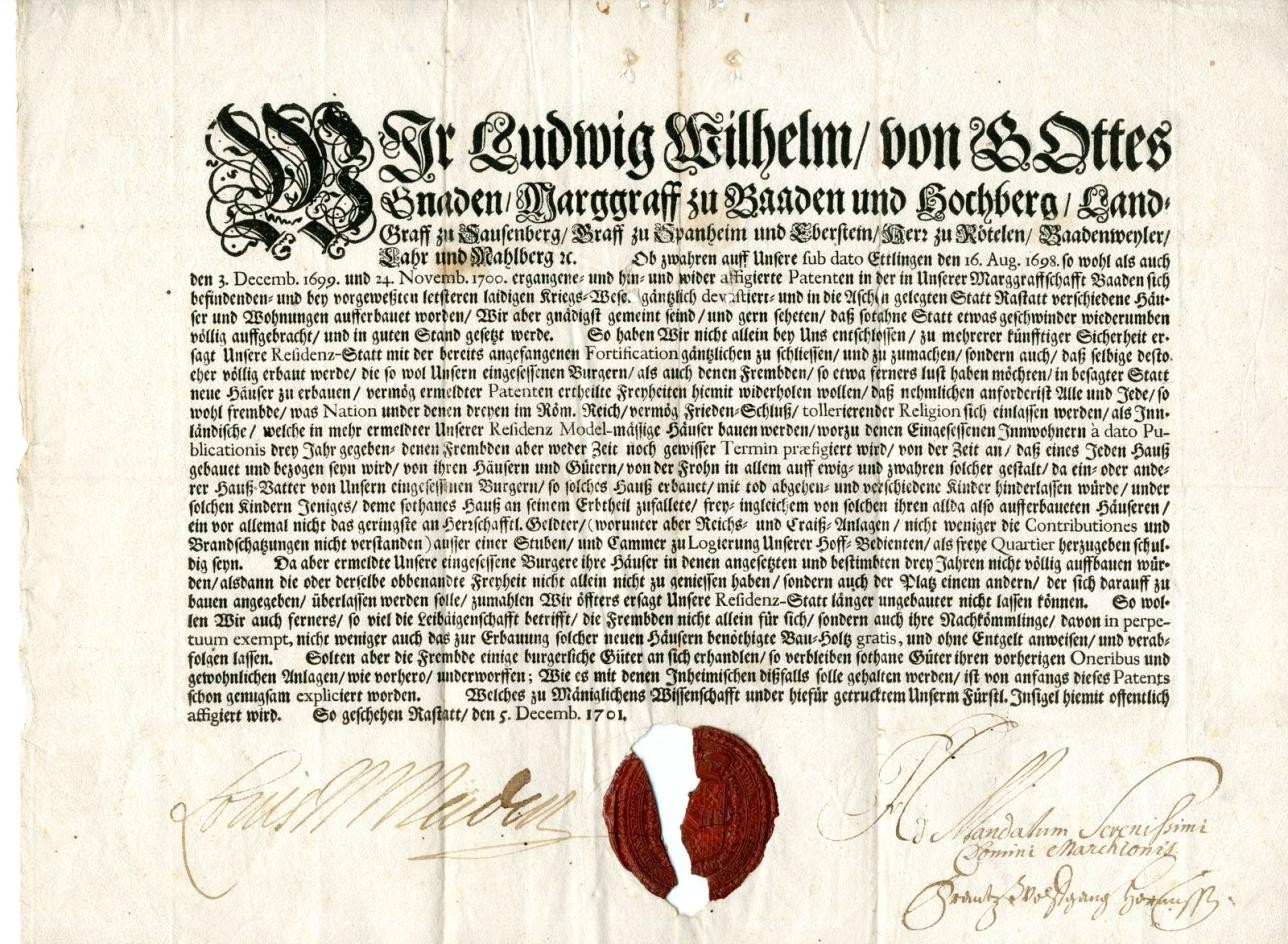 WIr Ludwig Wilhelm/ von GOttes
Gnaden/ Marggraff zu Baaden und Hochberg/ Land-
Graff zu Sausenberg/ Graff zu Spanheim und Eberstein/ Herr zu Rötelen/ Baadenweyler/
Lahr und Mahlberg ꝛc. Ob zwahren auff Unsere sub dato Ettlingen den 16. Aug. 1698. so wohl als auch
den 3. Decemb. 1699. und 24. Novemb. 1700. ergangene- und hin- und wider affigierte Patenten in der in Unserer Marggraffschafft Baaden sich
befindenden- und bey vorgeweßten letsteren laidigen Kriegs-Wese. gäntzlich devastiert- und in die Aschen gelegten Statt Rastatt verschiedene Häu-
ser und Wohnungen aufferbauet worden/ Wir aber gnädigst gemeint seind/ und gern seheten/ daß sothane Statt etwas geschwinder wiederumben
völlig auffgebracht/ und in guten Stand gesetzt werde. So haben Wir nicht allein bey Uns entschlossen/ zu mehrerer künfftiger Sicherheit er-
sagt Unsere Residenz-Statt mit der bereits angefangenen Fortification gäntzlichen zu schliessen/ und zu zumachen/ sondern auch/ daß selbige desto
eher völlig erbaut werde/ die so wol Unsern eingesessenen Burgern/ als auch denen Frembden/ so etwa ferners lust haben möchten/ in besagter Statt
neue Häuser zu erbauen/ vermög ermeldter Patenten ertheilte Freyheiten hiemit widerholen wollen/ daß nehmlichen anforderist Alle und Jede/ so
wohl frembde/ was Nation under denen dreyen im Röm. Reich/ vermög Frieden-Schluß/ tollerierender Religion sich einlassen werden/ als Inn-
ländische/ welche in mehr ermeldter Unserer Residenz Model-mässige Häuser bauen werden/ worzu denen Eingesessenen Innwohnern à dato Pu-
blicationis drey Jahr gegeben- denen Frembden aber weder Zeit noch gewisser Termin præfigiert wird/ von der Zeit an/ daß eines Jeden Hauß
gebauet und bezogen seyn wird/ von ihren Häusern und Gütern/ von der Frohn in allem auff ewig- und zwahren solcher gestalt/ da ein- oder ande-
rer Hauß-Vatter von Unsern eingesessenen Burgern/ so solches Hauß erbauet/ mit tod abgehen- und verschiedene Kinder hinderlassen würde/ under
solchen Kindern Jeniges/ deme sothanes Hauß an seinem Erbtheil zufallete/ frey- ingleichem von solchen ihren allda also aufferbaueten Häuseren/
ein vor allemal nicht das geringste an Herrschafftl. Geldter/ (worunter aber Reichs- und Craiß-Anlagen/ nicht weniger die Contributiones und
Brandschatzungen nicht verstanden) ausser einer Stuben/ und Cammer zu Logierung Unserer Hoff-Bedienten/ als freye Quartier herzugeben schul-
dig seyn. Da aber ermeldte Unsere eingesessene Burgere ihre Häuser in denen angesetzten und bestimbten drey Jahren nicht völlig auffbauen wür-
den/ alsdann die oder derselbe obbenandte Freyheit nicht allein nicht zu geniessen haben/ sondern auch der Platz einem andern/ der sich darauff zu
bauen angegeben/ überlassen werden solle/ zumahlen Wir öffters ersagt Unsere Residenz-Statt länger ungebauter nicht lassen können. So wol-
len Wir auch ferners/ so viel die Leibäigenschafft betrifft/ die Frembden nicht allein für sich/ sondern auch ihre Nachkömmlinge/ davon in perpe-
tuum exempt, nicht weniger auch das zur Erbauung solcher neuen Häusern benöthigte Bau-Holtz gratis, und ohne Entgelt anweisen/ und verab-
folgen lassen. Solten aber die Frembde einige burgerliche Güter an sich erhandlen/ so verbleiben sothane Güter ihren vorherigen Oneribus und
gewohnlichen Anlagen/ wie vorhero/ underworffen; Wie es mit denen Inheimischen dißfalls solle gehalten werden/ ist von anfangs dieses Patents
schon genugsam expliciert worden. Welches zu Mäniglichens Wissenschafft under hiefür getrucktem Unserm Fürstl. Insigel hiemit offentlich
affigiert wird. So geschehen Rastatt/ den 5. Decemb. 1701.
Louis
Ad Mandatum Serenissimi
Domini Marchionis
Frantz Wolfgang